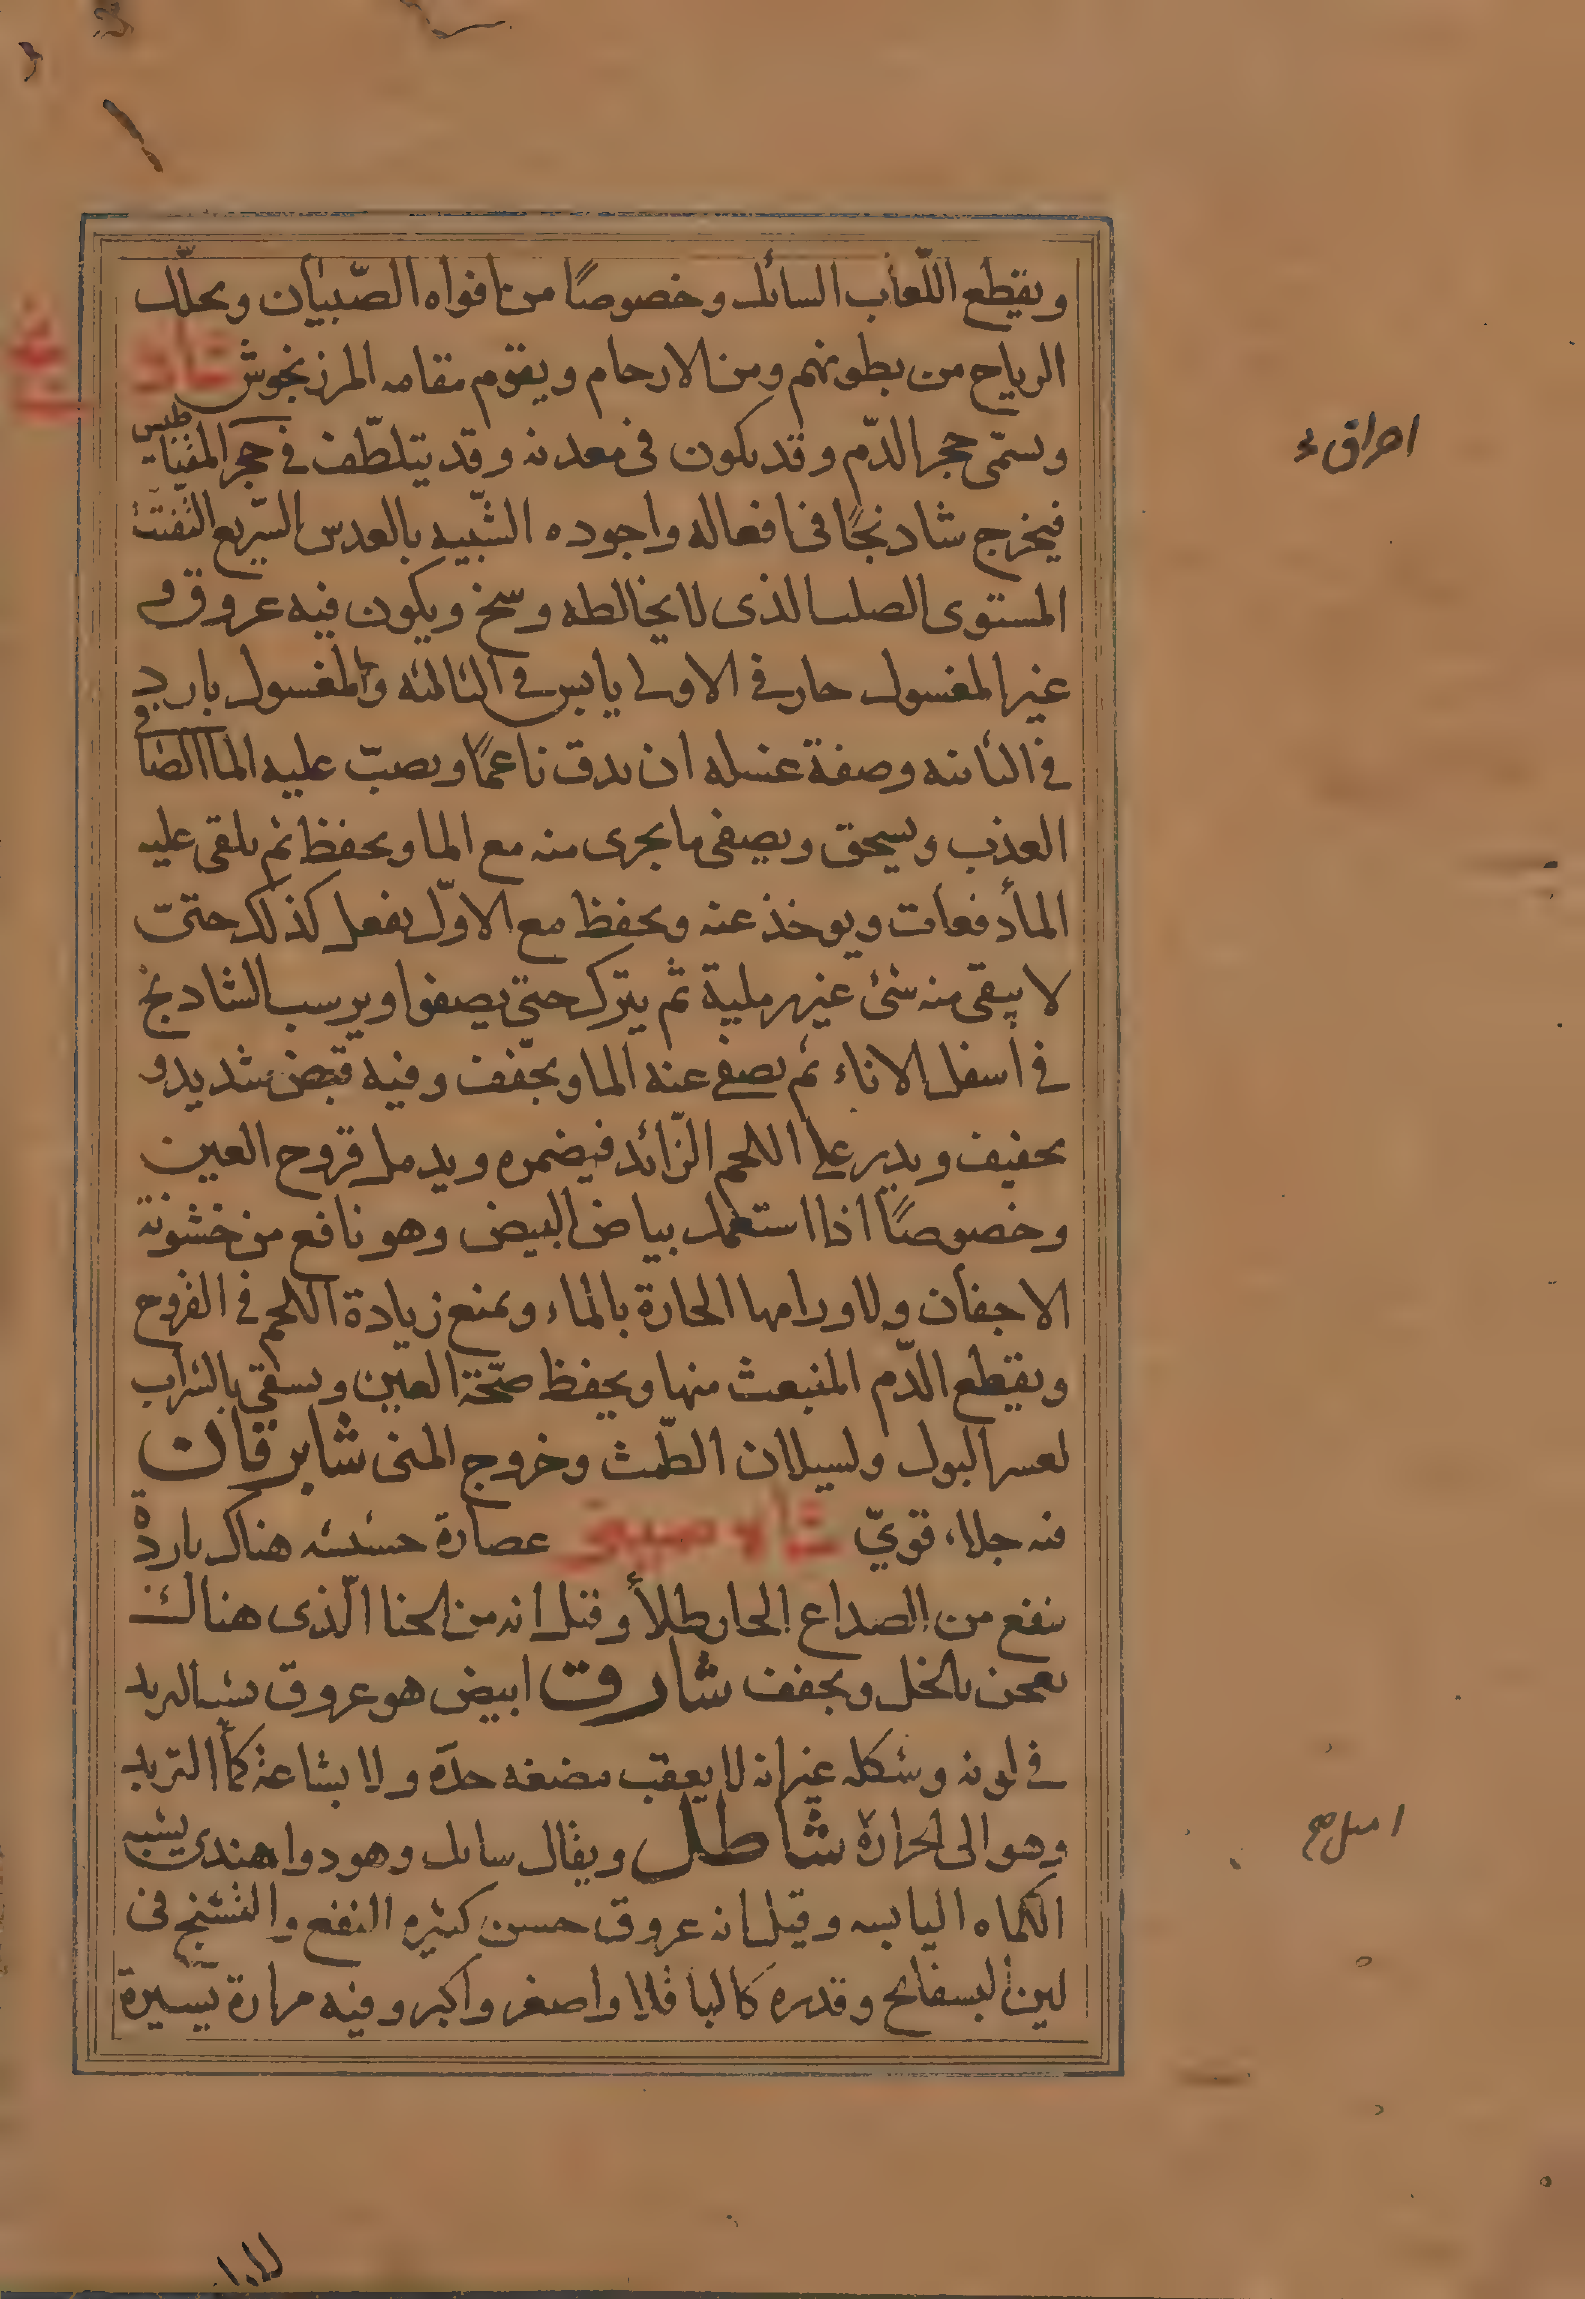 ويقطع اللّعاب السائل وخصوصًا من افواه الصّبيان ويحلّل
الرياح من بطونهم ومن الارحام ويقوم مقامه المرزنجوش
ويسمّى حجر الدّم وقد يكون فى معدنه وقد يتلطّف فى حجر المغناطيس
فيخرج شادنجًا فى افعاله واجوده الشّبيه بالعدس السّريع التفتت
المستوى الصلب الذى لا يخالطه وسخ ويكون فيه عروق و
غير المغسول حار فى الاولى يابس فى الثالثه والمغسول بارد
فى الثانيه وصفة غسله ان يدق ناعمًا ويصبّ عليه الما الصافى
العذب ويسحق ويصفى ما يجرى منه مع الما ويحفظ ثم يلقى عليه
الماء دفعات ويوخذ عنه ويحفظ مع الاوّل يفعل كذلك حتىّ
لا يبقى منه شئ غير رملية ثم يترك حتى يصفوا ويرسب الشادنج
فى اسفل الاناء ثم يصفى عنه الما ويجفّف وفيه قبض شديد و
تجفيف ويذر على اللحم الزّائد فيضمره ويدمل قروح العين
وخصوصًا اذا استعمل ببياض البيض وهو نافع من خشونة
الاجفان ولاورامها الحارة بالماء ويمنع زيادة اللحم فى القروح
ويقطع الدّم المنبعث منها ويحفظ صحّة العين ويسقى بالشراب
لعسر البول ولسيلان الطّمث وخروج المنى شابرقان
فيه جلاء قويّ عصارة حشيشه هناك باردة
ينفع من الصداع الحار طلاءً وقيل انه من الحنا الّذى هنالك
يعجن بالخل ويجفف شارق ابيض هو عروق يشبه التربد
فى لونه وشكله غير انه لا يعقب مضغه حدّه ولا بشاعة كما التربد
وهو الى الحرارة شاطل ويقال ساتل وهو دوا هندى يشبه
الكماه اليابسه وقيل انه عروق حسن كثيره النفع والتشنج فى
لين البسفايج وقدره كالباقلا واصغر واكبر وفيه مرارة يسيرة